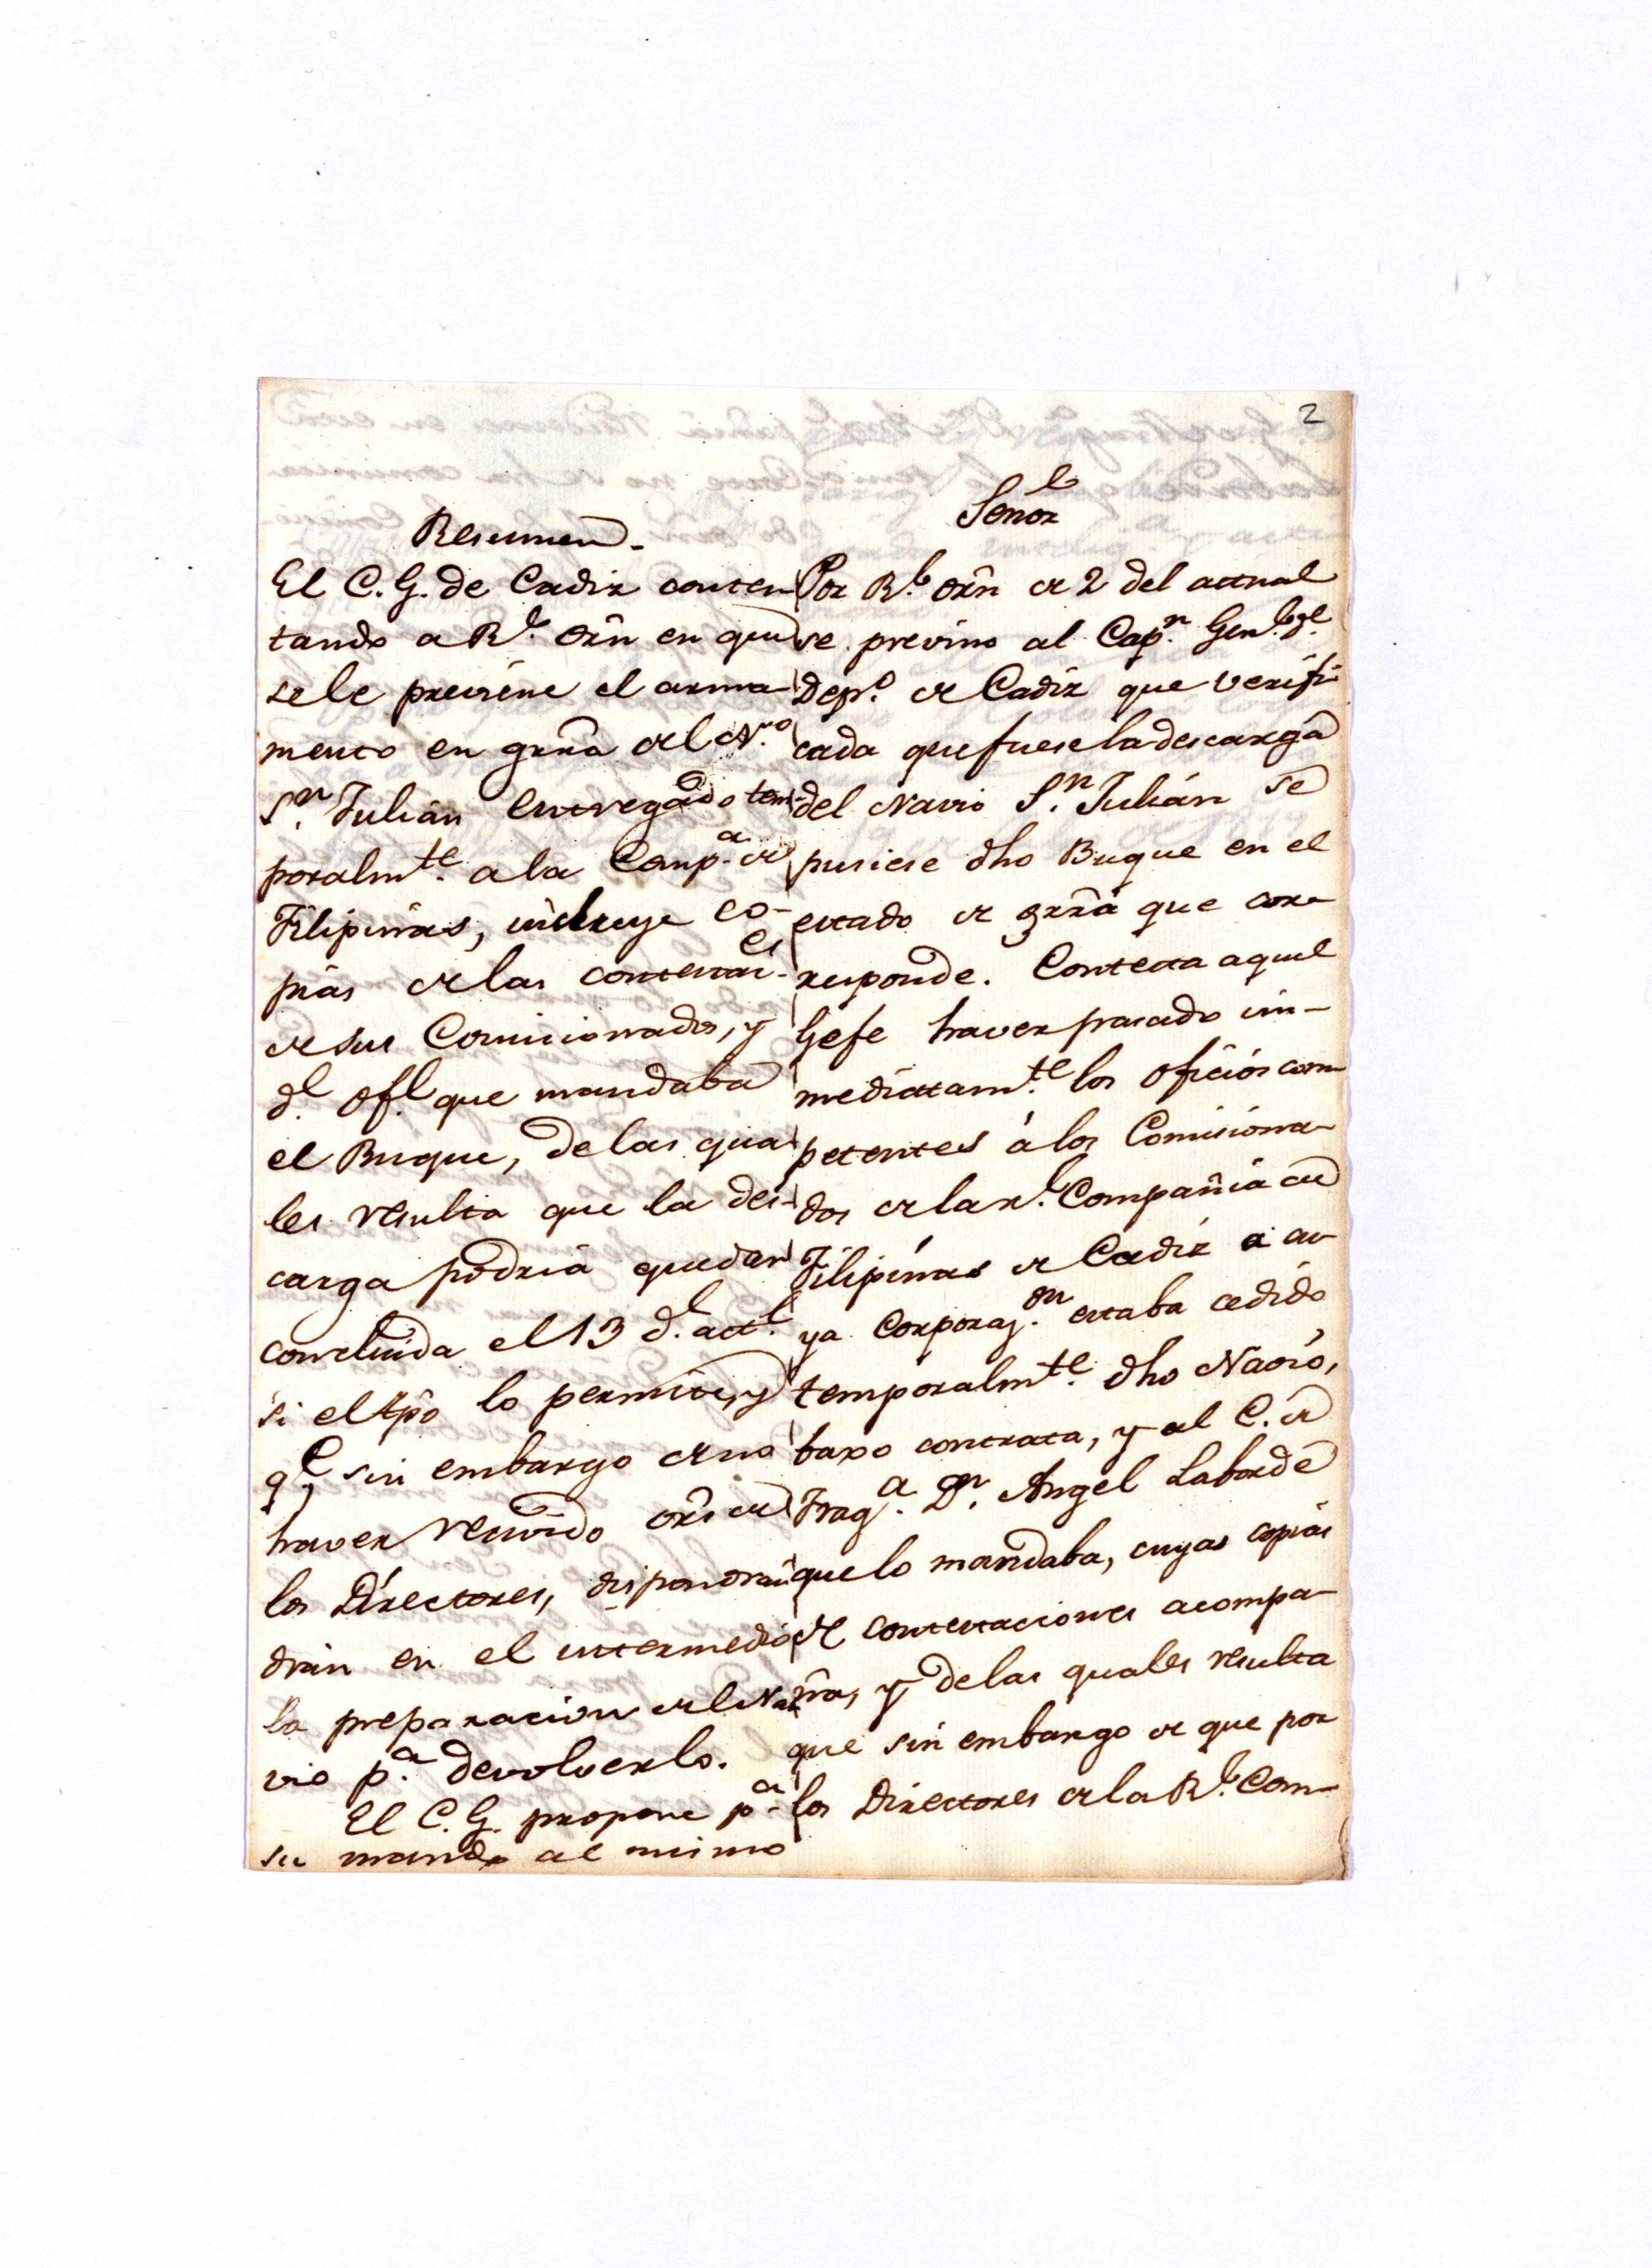 2
Resumen.
El C. G. de Cadiz contes-
tando a Rl. orñ en que
se le previene el arma-
mento en grra del N.vo
Sn. Julián entregado tem-
poralmte. a la Comp.a de
Filipinas, incluye co-
pias de las contestacs.
de sus Comicionados, y
dl. ofl. que mandaba
el Buque, de las qua
les resulta que la des-
carga podria quedar
concluida el 13 dl. actl.
si el tpo lo permite, y
qe. sin embargo de no
haver recivido orñs de
los Directores, dispondran
drán en el intermedio
la preparacion del Na-
vio p.a devolverlo.
El C. G. propone p.a
su mando al mismo
Señor
Por Rl. orñ de 2 del actual
se previno al Capn. Genl. dl.
Depo. de Cadiz que verifi-
cada que fuese la descarga
del Navio Sn. Julián se
pusiese dho Buque en el
estado de grra que cor-
responde. Contesta aquel
Gefe haver pasado in-
mediatamte. los oficios com-
petentes á los Comisiona-
dos de la Rl. Compañia de
Filipinas de Cadiz a cu-
ya Corporazon. estaba cedido
temporalmte. dho Navio,
baxo contrata, y al C. de
Frag.a Dn. Angel Laborde
que lo mandaba, cuyas copias
de contestaciones acompa-
ña, y de las quales resulta
que sin embargo de que por
los Directores de la Rl. Com-